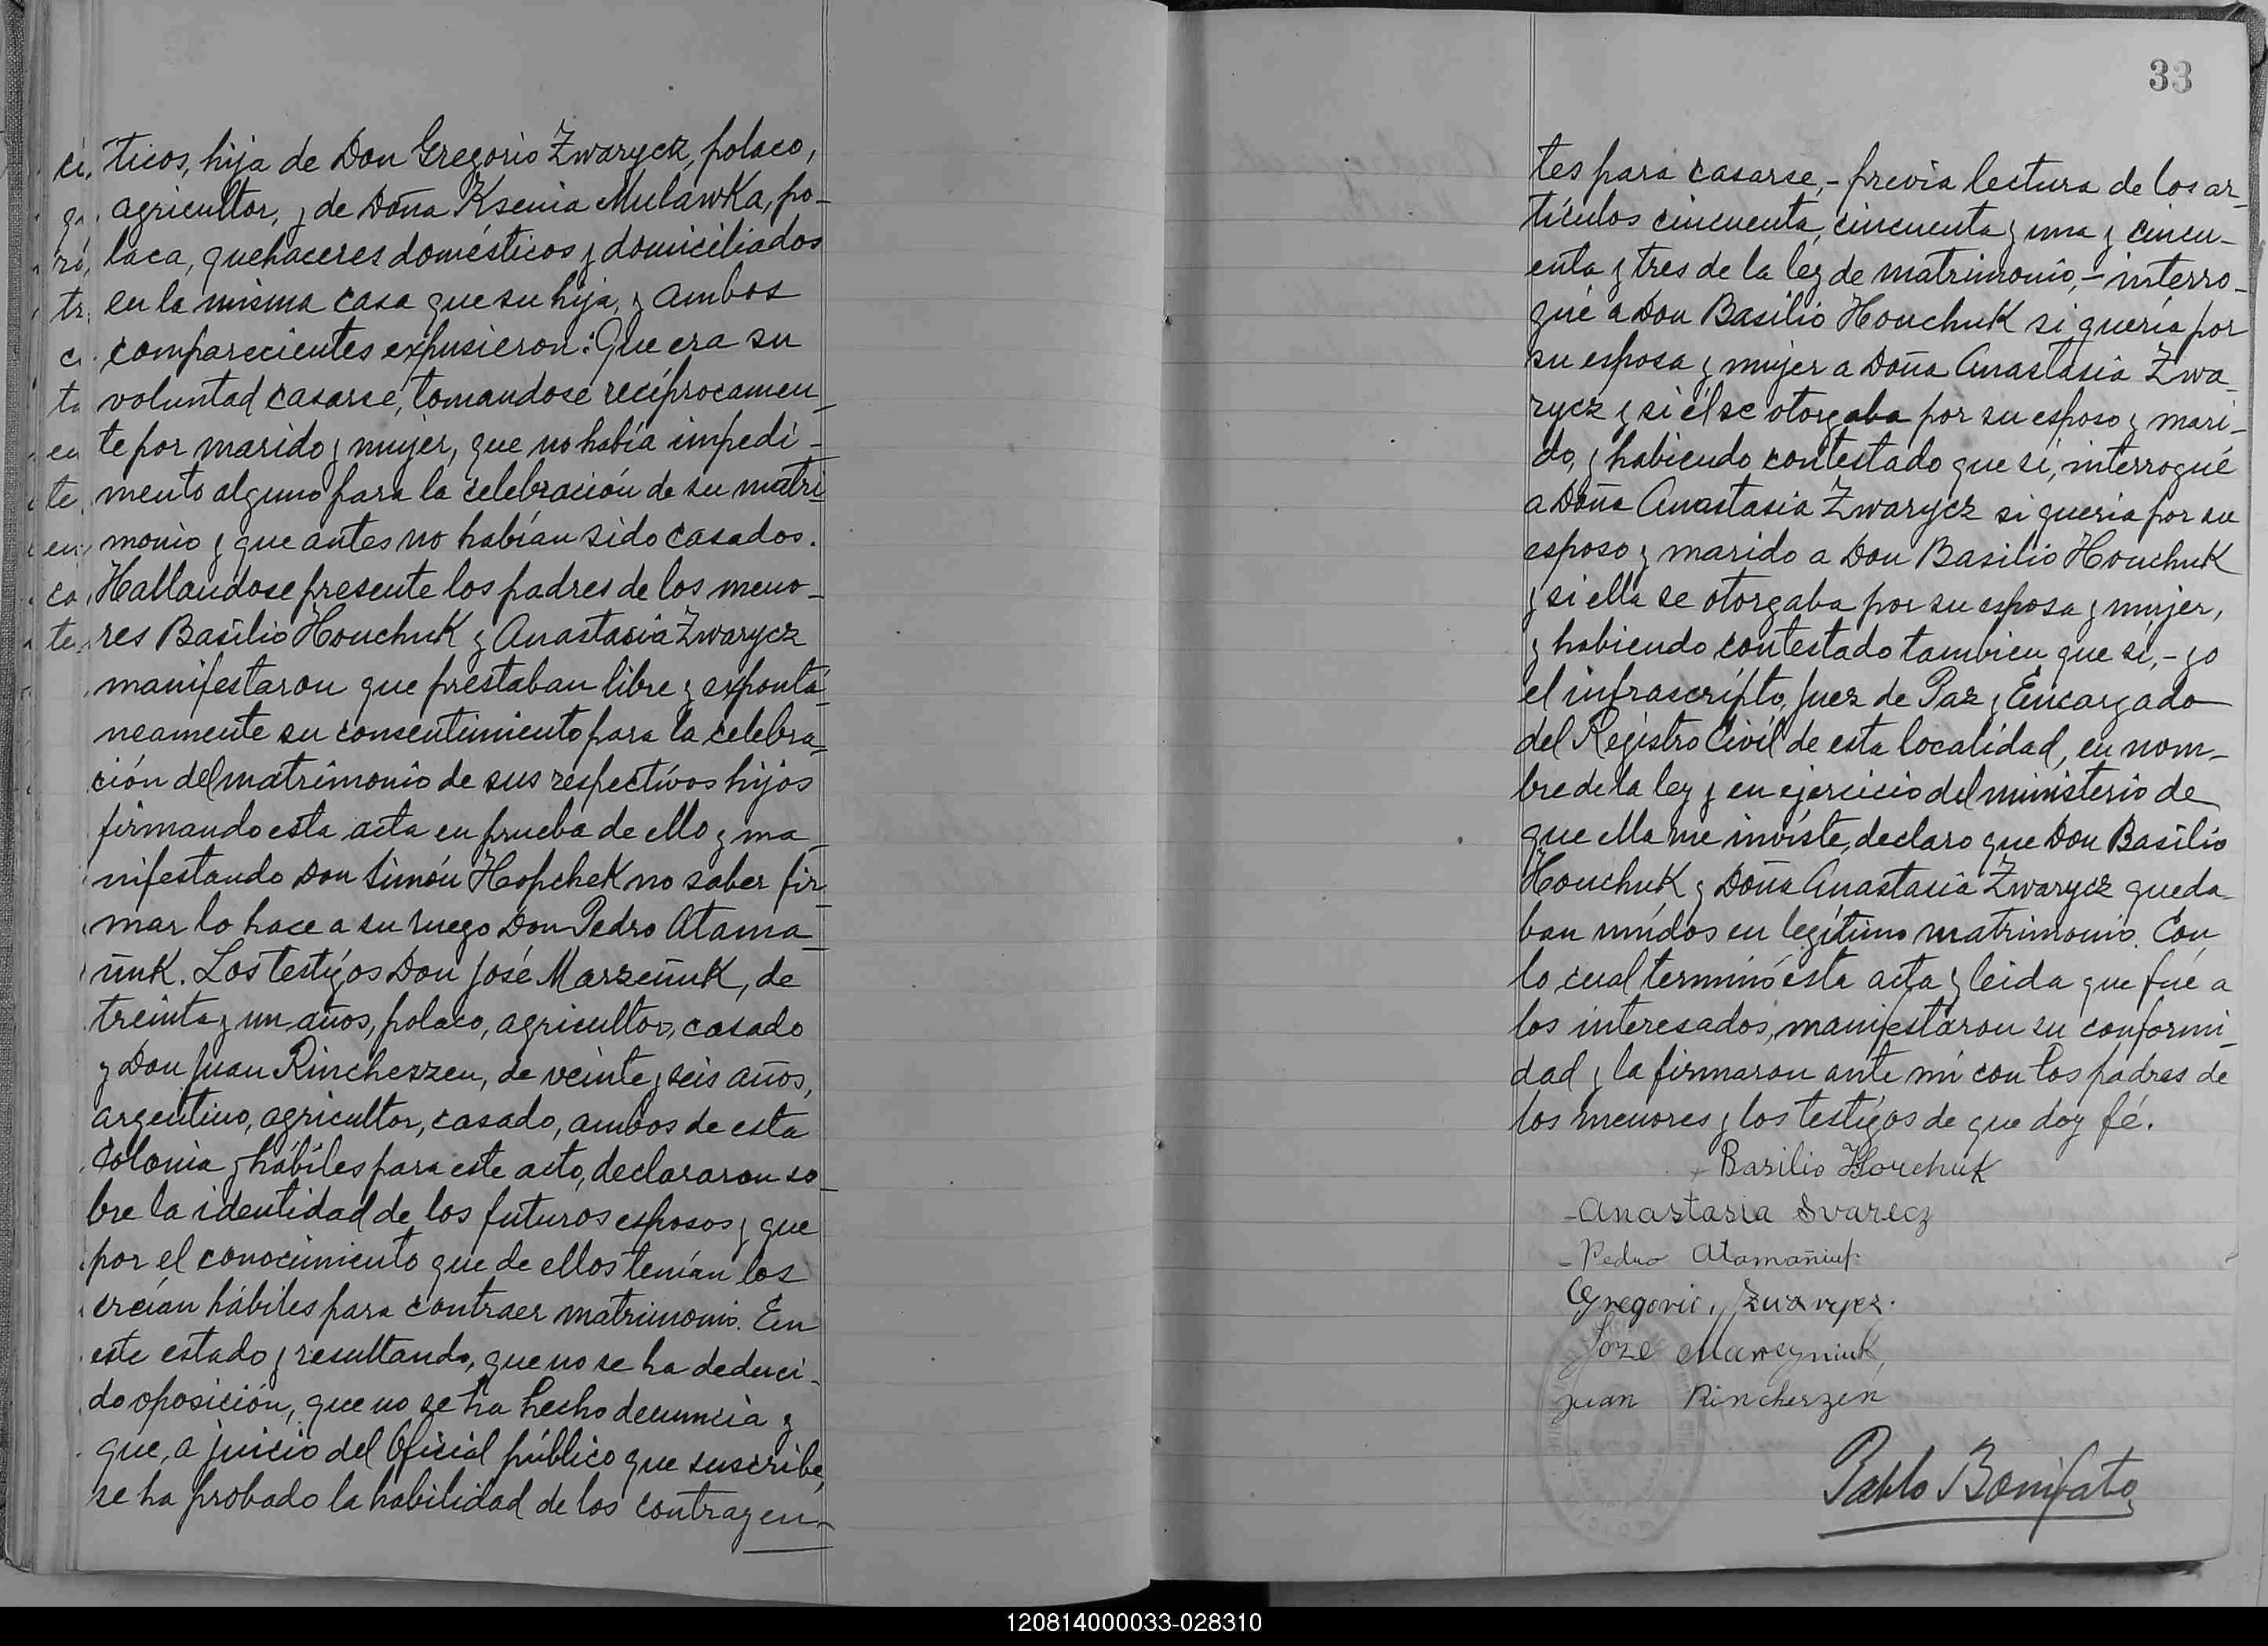 ticos, hija de Don Gregorio Zwarycz, polaco,
agricultor, y de Doña Ksenia Mulawka, po-
laca, quehaceres domésticos y domiciliados
en la misma casa que su hija, y ambos
comparecientes expusieron: Que era su
voluntad casarse, tomandose recíprocamen-
te por marido y mujer, que no había impedi-
mento alguno para la celebración de su matri-
monio y que antes no habían sido casados.
Hallandose presente los padres de los meno-
res Basilio Houchuk y Anastasia Zwarycz
manifestaron que prestaban libre y expontá-
neamente su consentimiento para la celebra-
ción del matrimonio de sus respectivos hijos
firmando esta acta en prueba de ello y ma-
nifestando Don Simón Hopchek no saber fir-
mar lo hace a su ruego Don Pedro Atama-
ñuk. Los testigos Don José Marzeñuk, de
treinta y un años, polaco, agricultor, casado
y Don Juan Rincherzen, de veinte y seis años,
argentino, agricultor, casado, ambos de esta
Colonia y hábiles para este acto, declararon so-
bre la identidad de los futuros esposos y que
por el conocimiento que de ellos tenían los
creían hábiles para contraer matrimonio. En
este estado y resultando, que no se ha deduci-
do oposición, que no se ha hecho denuncia y
que, a juicio del Oficial público que suscribe,
se ha probado la habilidad de los contrayen-
33
tes para casarse,- previa lectura de los ar-
tículos cincuenta, cincuenta y una y cincu-
enta y tres de la ley de matrimonio,- interro-
gué a Don Basilio Houchuk si quería por
su esposa y mujer a Doña Anastasia Zwa-
rycz y si él se otorgaba por su esposo y mari-
do, y habiendo contestado que sí, interrogué
a Doña Anastasia Zwarycz si quería por su
esposo y marido a Don Basilio Houchuk
y si ella se otorgaba por su esposa y mujer,
y habiendo contestado tambien que sí,- yo
el infrascripto, Juez de Paz y Encargado
del Registro Civil de esta localidad, en nom-
bre de la ley y en ejercicio del ministerio de
que ella me inviste, declaro que Don Basilio
Houchuk y Doña Anastasia Zwarycz queda-
ban unidos en legítimo matrimonio. Con
lo cual terminó esta acta y leida que fué a
los interesados, manifestaron su conformi-
dad y la firmaron ante mí con los padres de
los menores y los testigos de que doy fé.
Basilio Houchuk
Anastasia Svarecz
Pedro Atamañiuk
Gregorio Zwarycz.
Joze Marsyniuk
Juan Rincherzen
Pablo Bonifato
120814000033-028310